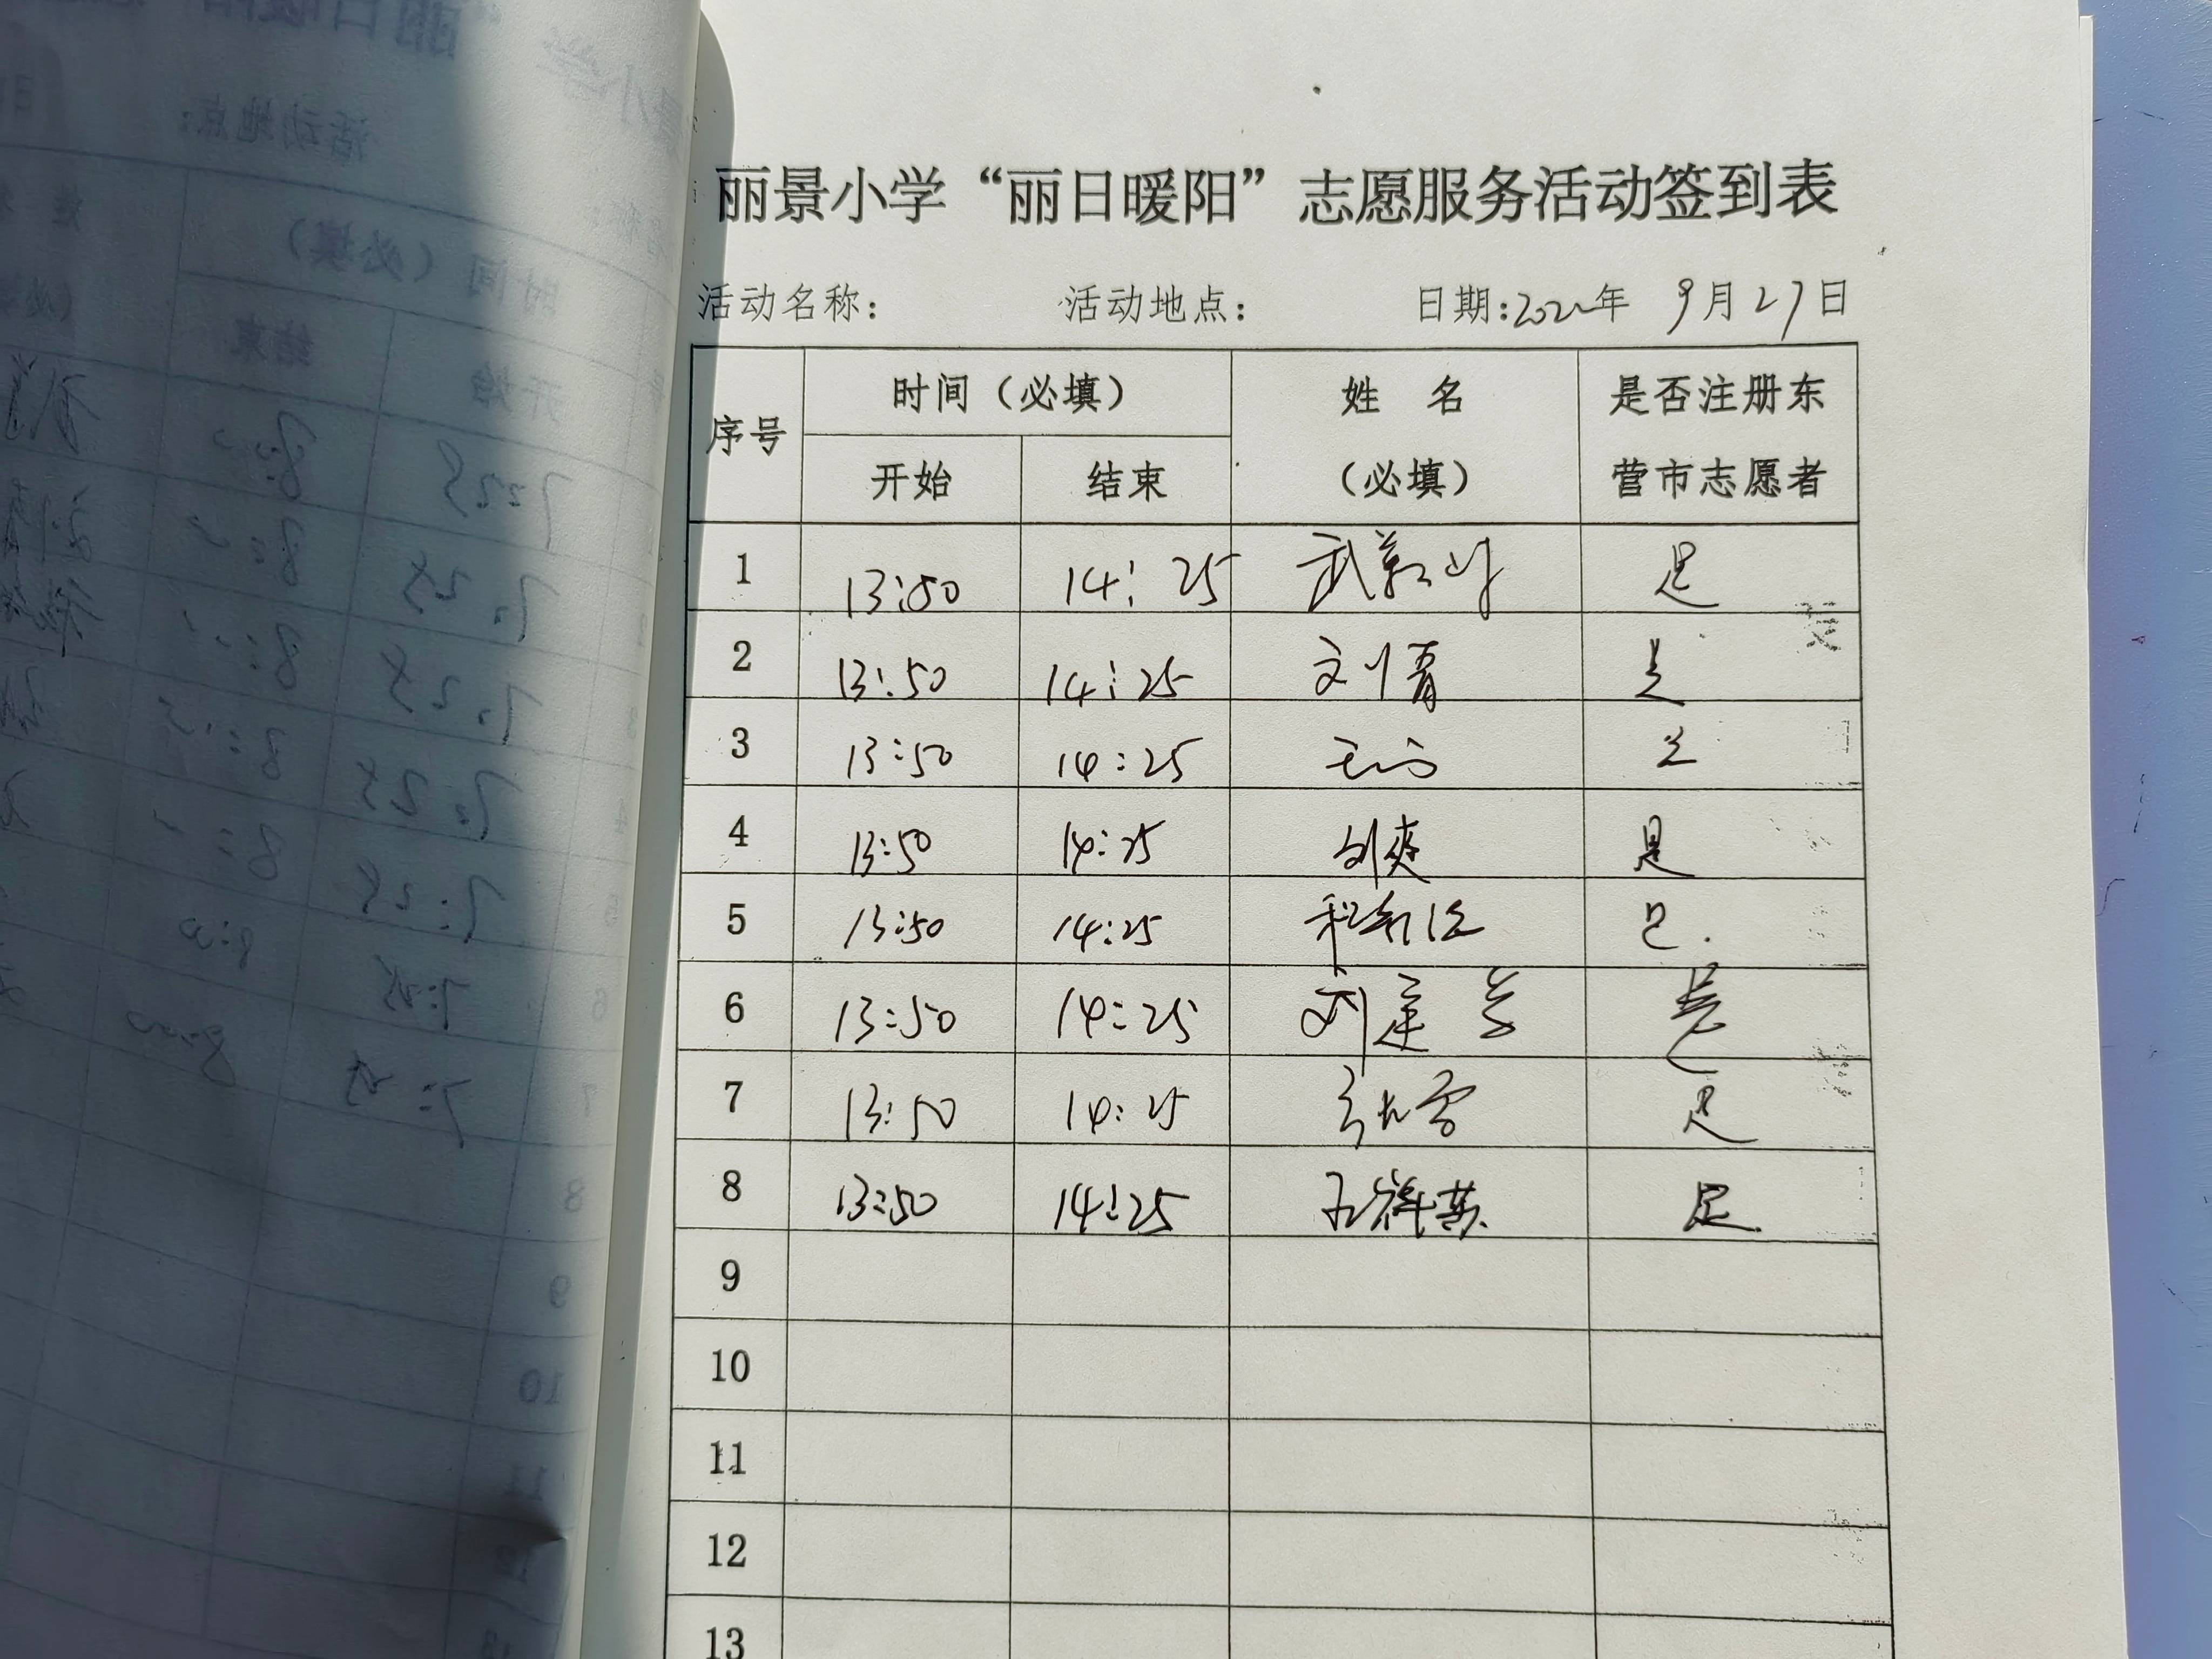 丽景小学“丽日暖阳”志愿服务活动签到表
活动名称： 活动地点： 日期:2022年 9月27日
序号 时间（必填） 姓 名（必填） 是否注册东营市志愿者
开始 结束
1 13:50 14:25 是
2 13:50 14:25 刘青 是
3 13:50 14:25 是
4 13:50 14:25 刘爽 是
5 13:50 14:25 是.
6 13:50 14:25 刘建芳 是
7 13:50 14:25 是
8 13:50 14:25 是
9
10
11
12
13